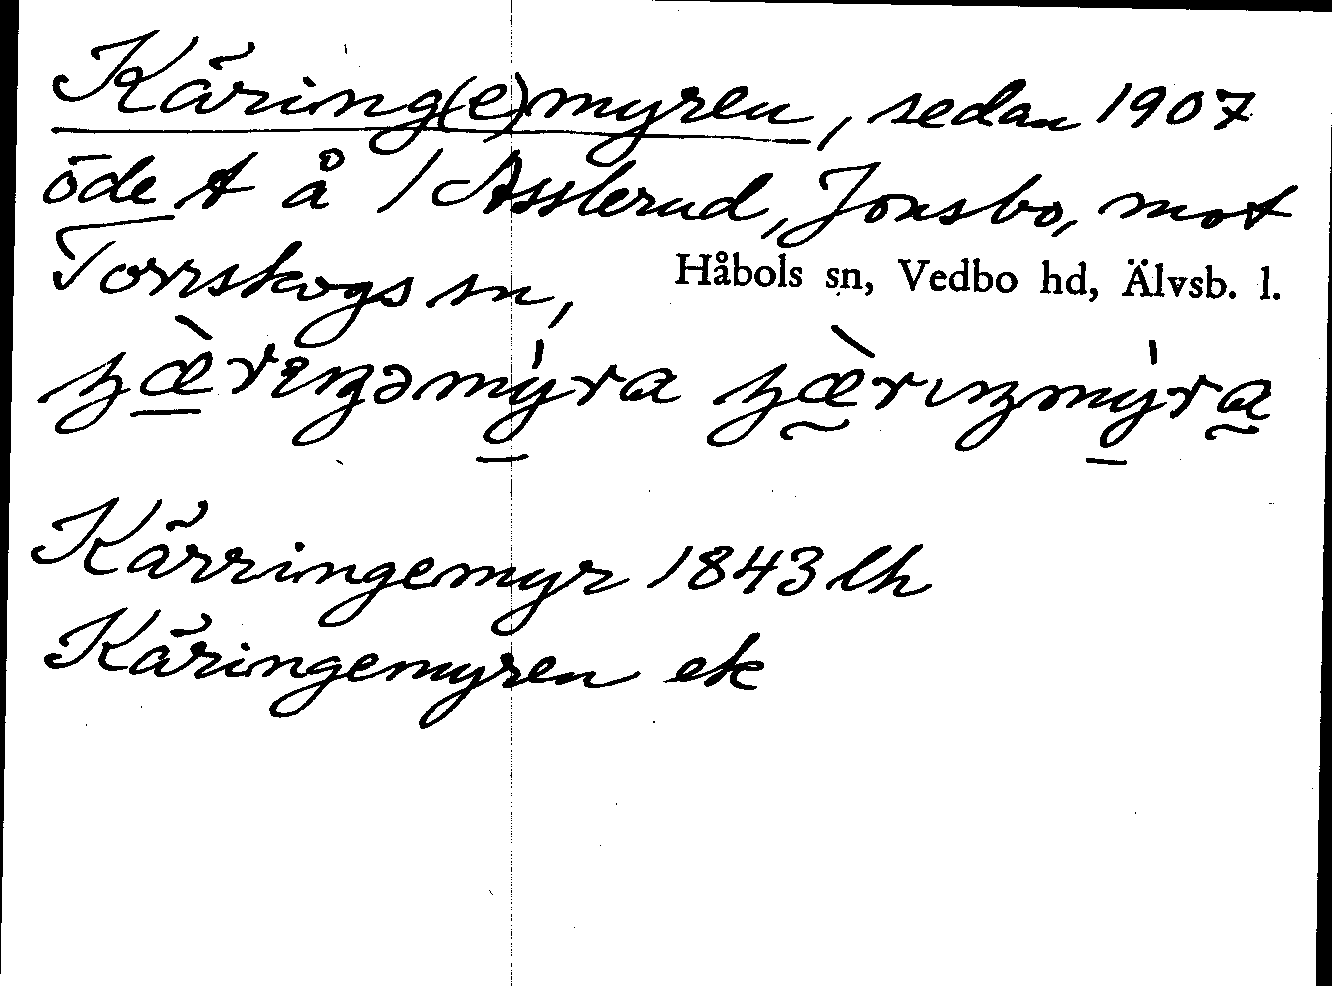 Käring(e)myren, sedan 1907
öde t å 1 Asslerud, Jonsbo, mot
Torrskogs sn,
Håbols sn, Vedbo hd, Älvsb. l.
Kärringemyr 1843 lh
Käringemyren ek